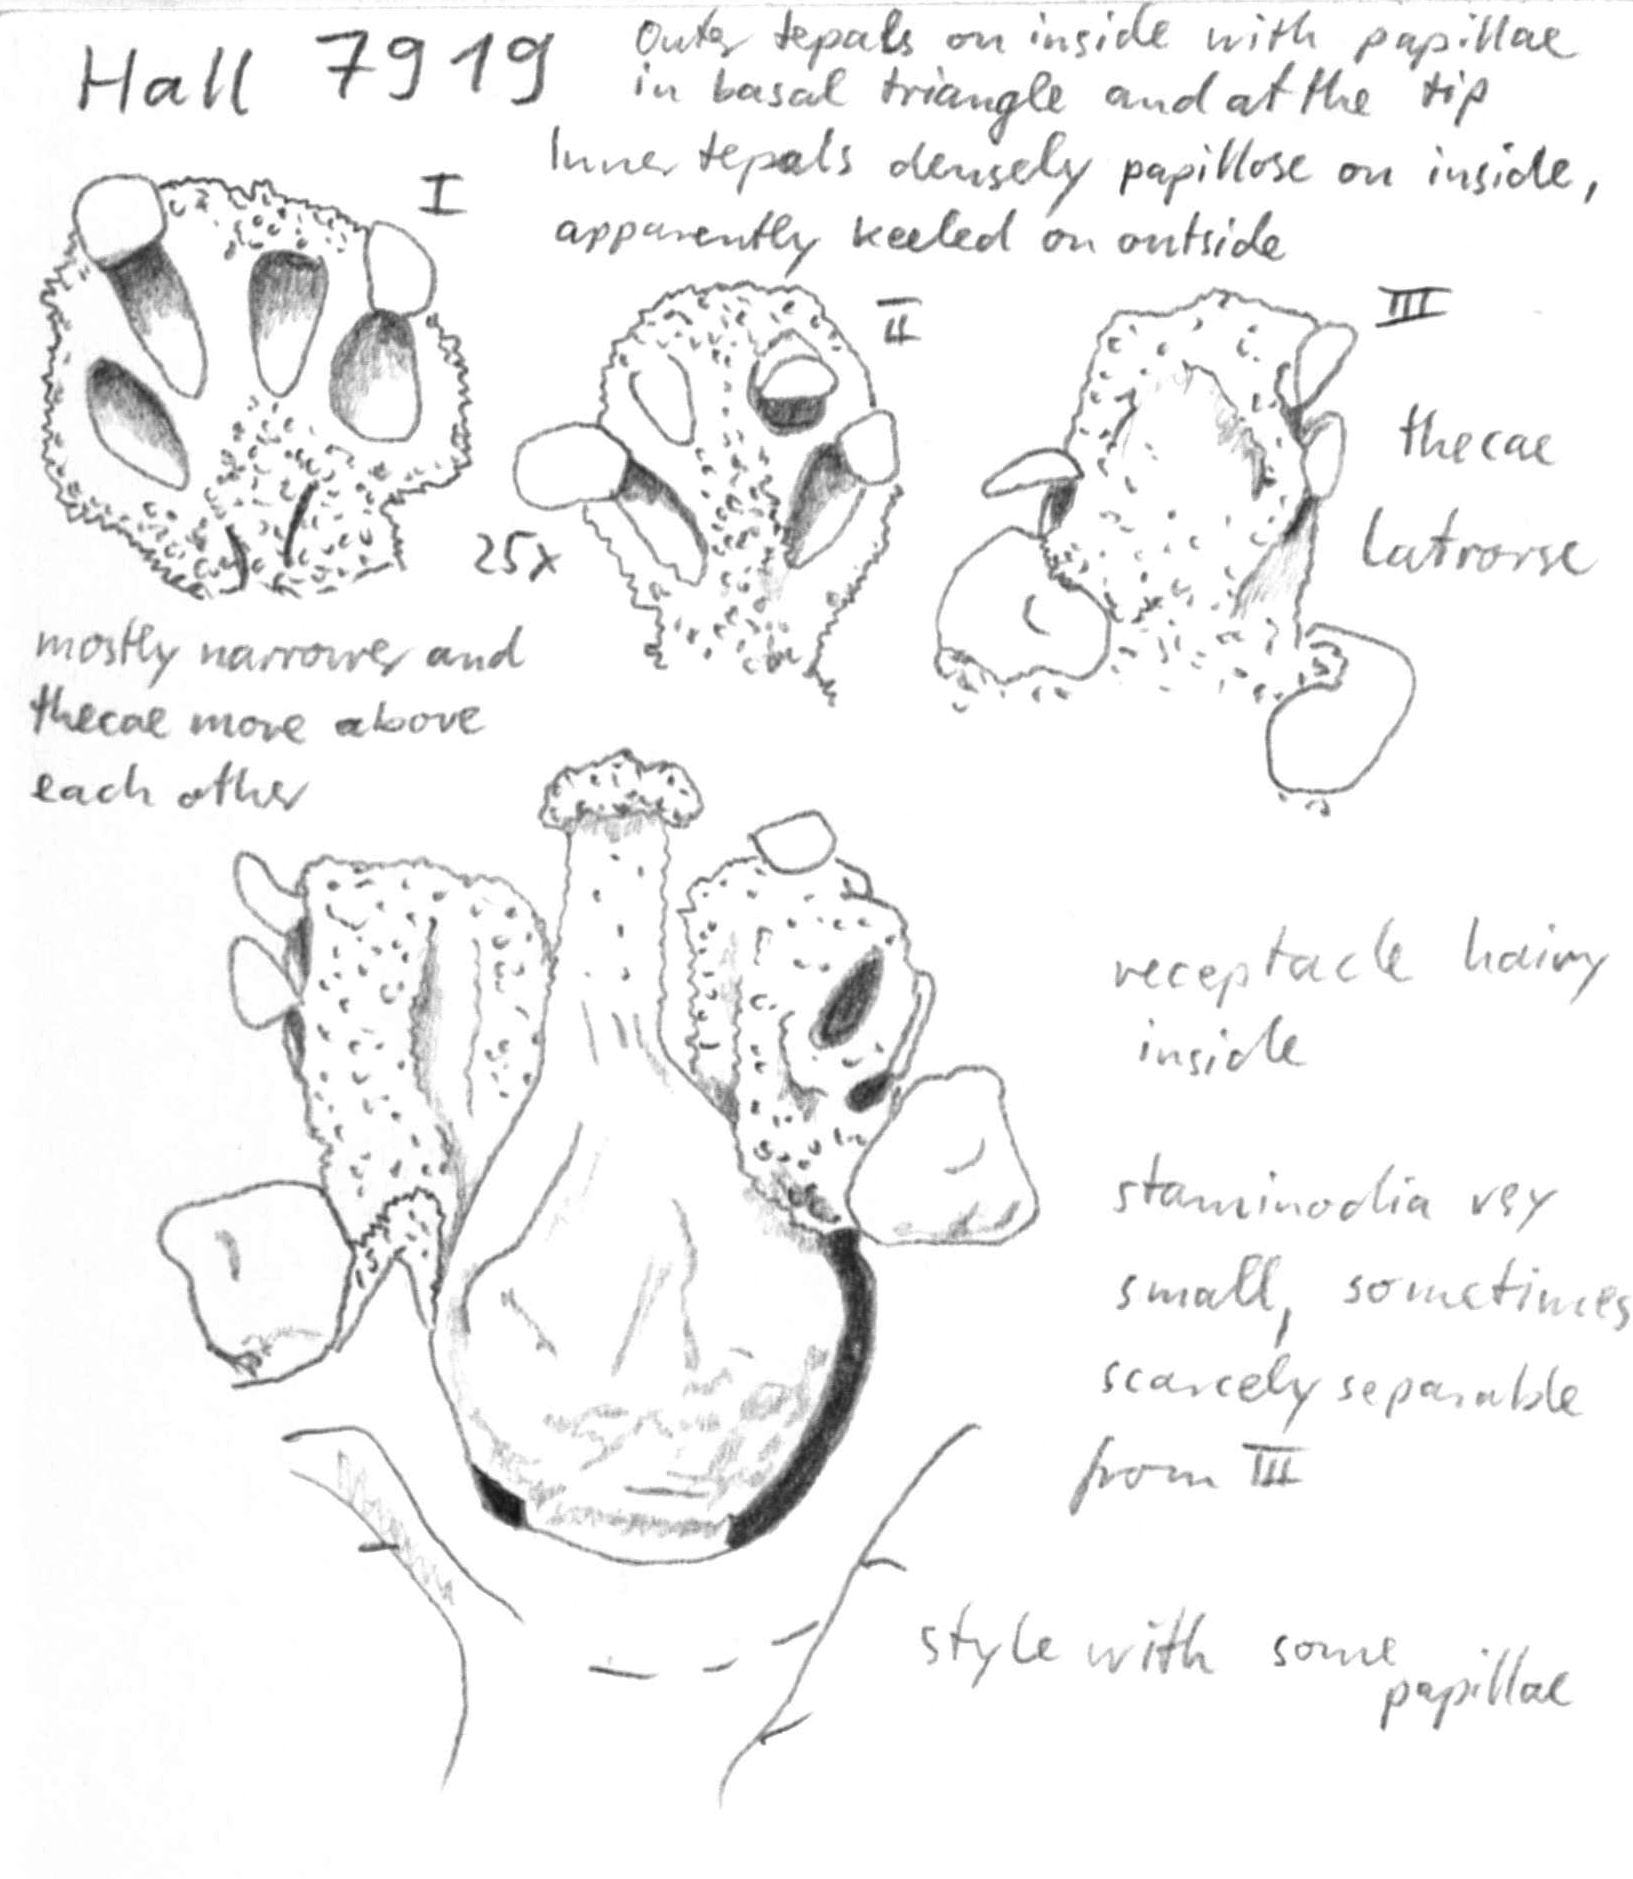 Hall 7919
Outer tepals on inside with papillae
in basal triangle and at the tip
Inner tepals densely papillose on inside,
apparently keeled on outside
I
II
III
25x
thecae
latrorse
mostly narrower and
thecae more above
each other
receptacle hairy
inside
staminodia vey
small, sometimes
scarcely separable
from III
style with some
papillae